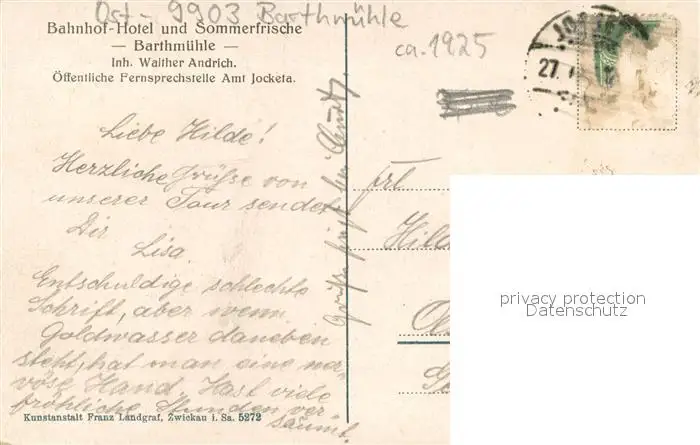 Ost - 9903 Barthmühle
Bahnhof-Hotel und Sommerfrische
— Barthmühle —
Inh. Walther Andrich.
Öffentliche Fernsprechstelle Amt Jocketa.
ca. 1925
27.
Liebe Hilde!
Herzliche Grüsse von
unserer Tour sendet
Dir
Lisa.
Entschuldige schlechte
Schrift, aber wenn
Goldwasser daneben
steht, hat man eine ner-
vöse Hand. Hast viele
fröhliche Stunden ver
säumt.
Frl
Hild
privacy protection
Datenschutz
Kunstanstalt Franz Landgraf, Zwickau i. Sa. 5272